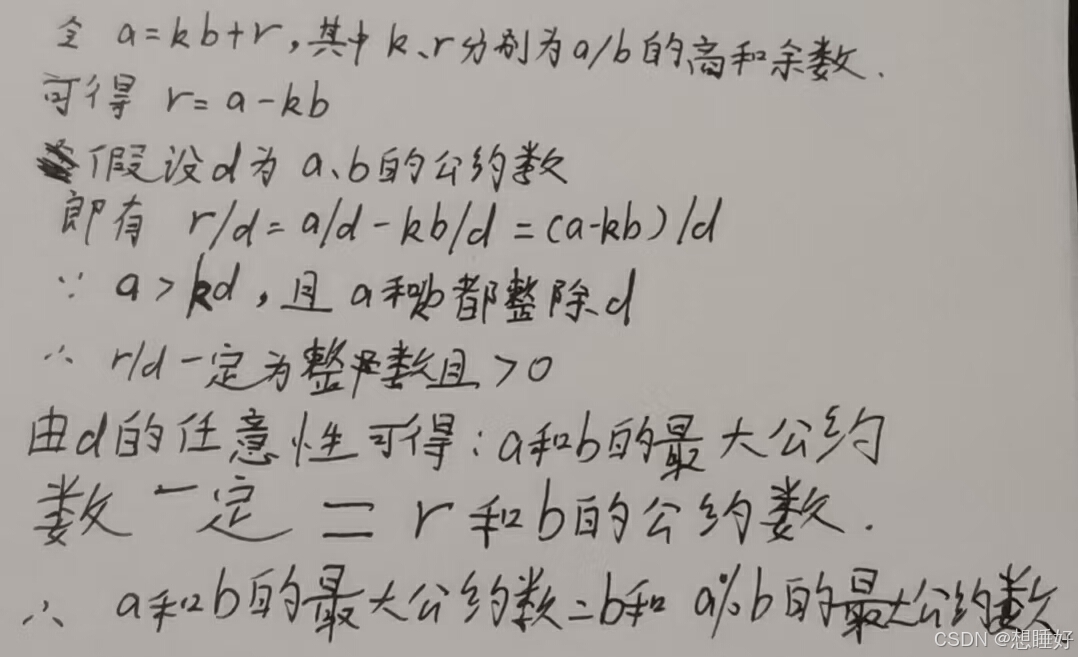 令 a=kb+r,其中 k、r分别为a/b的商和余数.
可得 r=a-kb
假设d为 a、b的公约数
即有 r/d=a/d-kb/d=(a-kb)/d
∵ a>kd,且 a和b都整除d
∴ r/d一定为整数且>0
由d的任意性可得:a和b的最大公约
数一定=r和b的公约数.
∴ a和b的最大公约数=b和 a%b的最大公约数
CSDN @想睡好